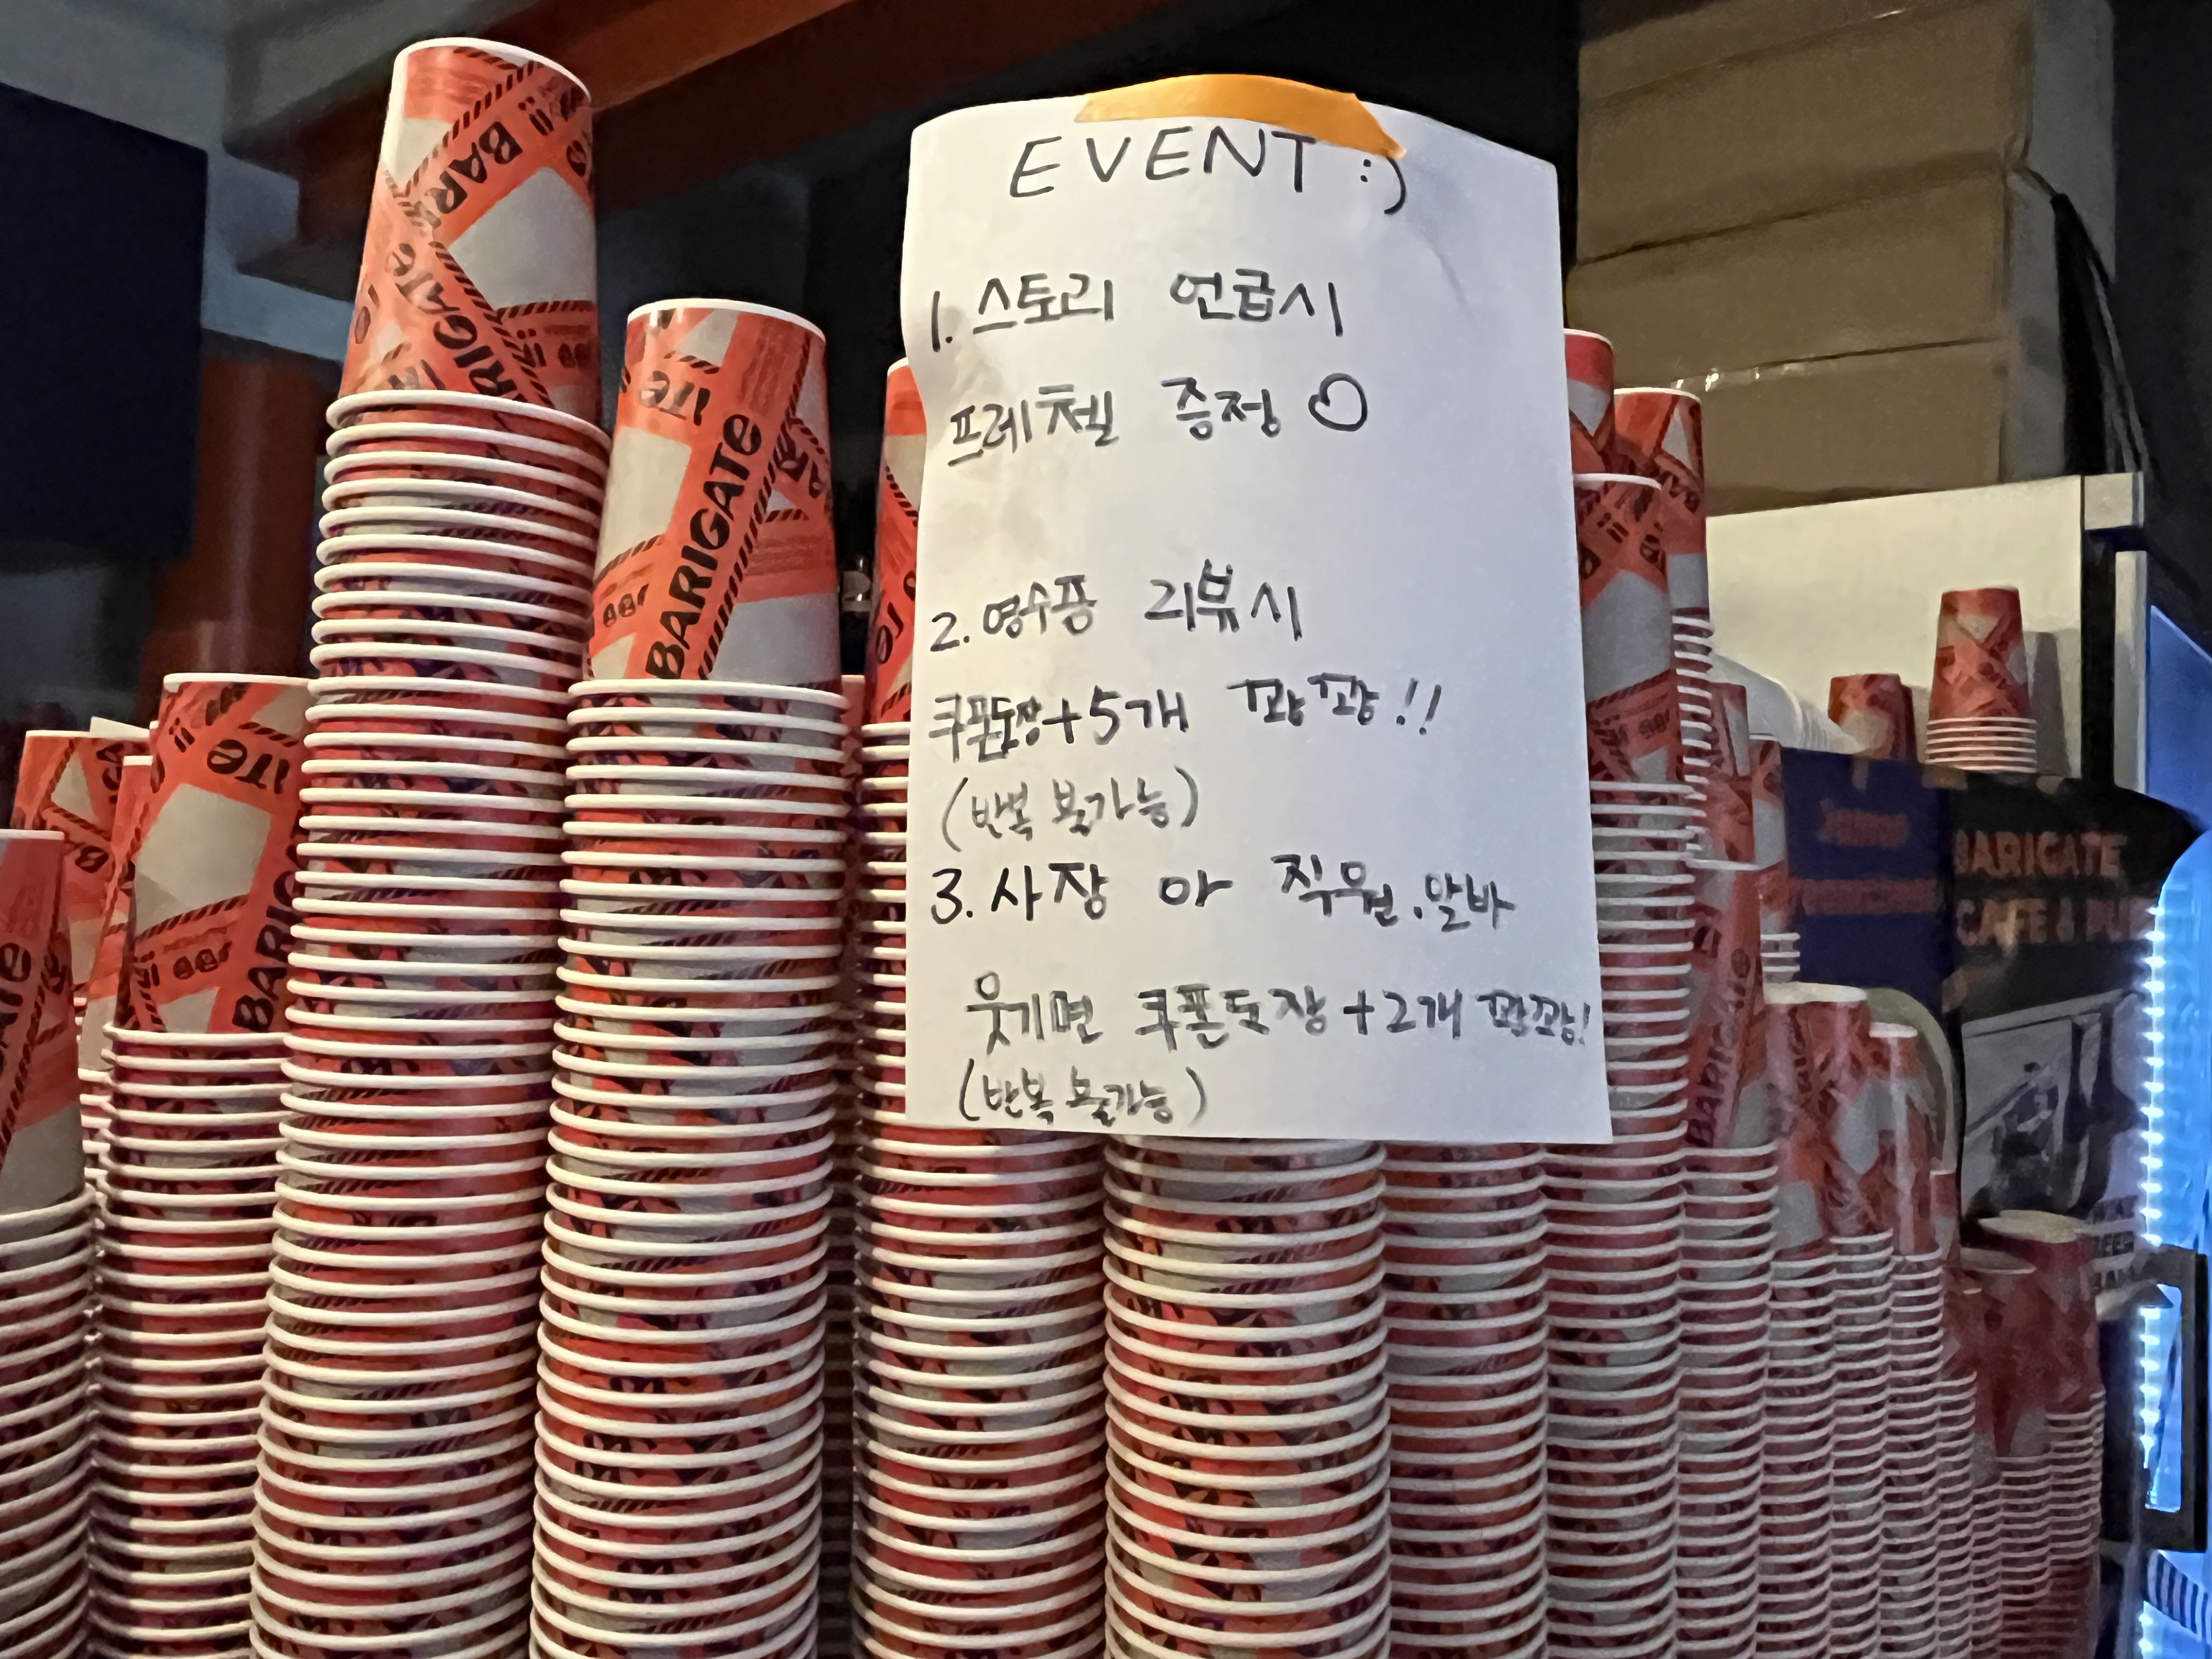 EVENT :)
1. 스토리 언급시
프레첼 증정
2. 영수증 리뷰시
쿠폰도장+5개 꽝꽝!!
(반복 불가능)
3. 사장 or 직원.알바
웃기면 쿠폰도장+2개 꽝꽝!
(반복 불가능)
BARIGATE
BARIGATE
BARIGATE
CAFE &